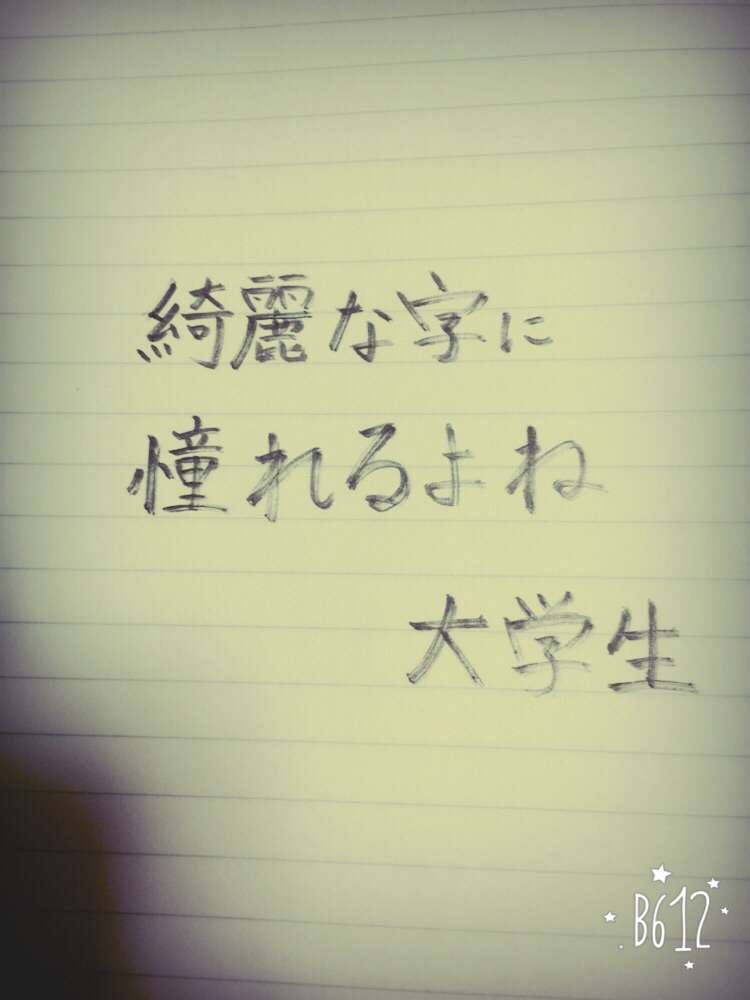 綺麗な字に
憧れるよね
大学生
B612